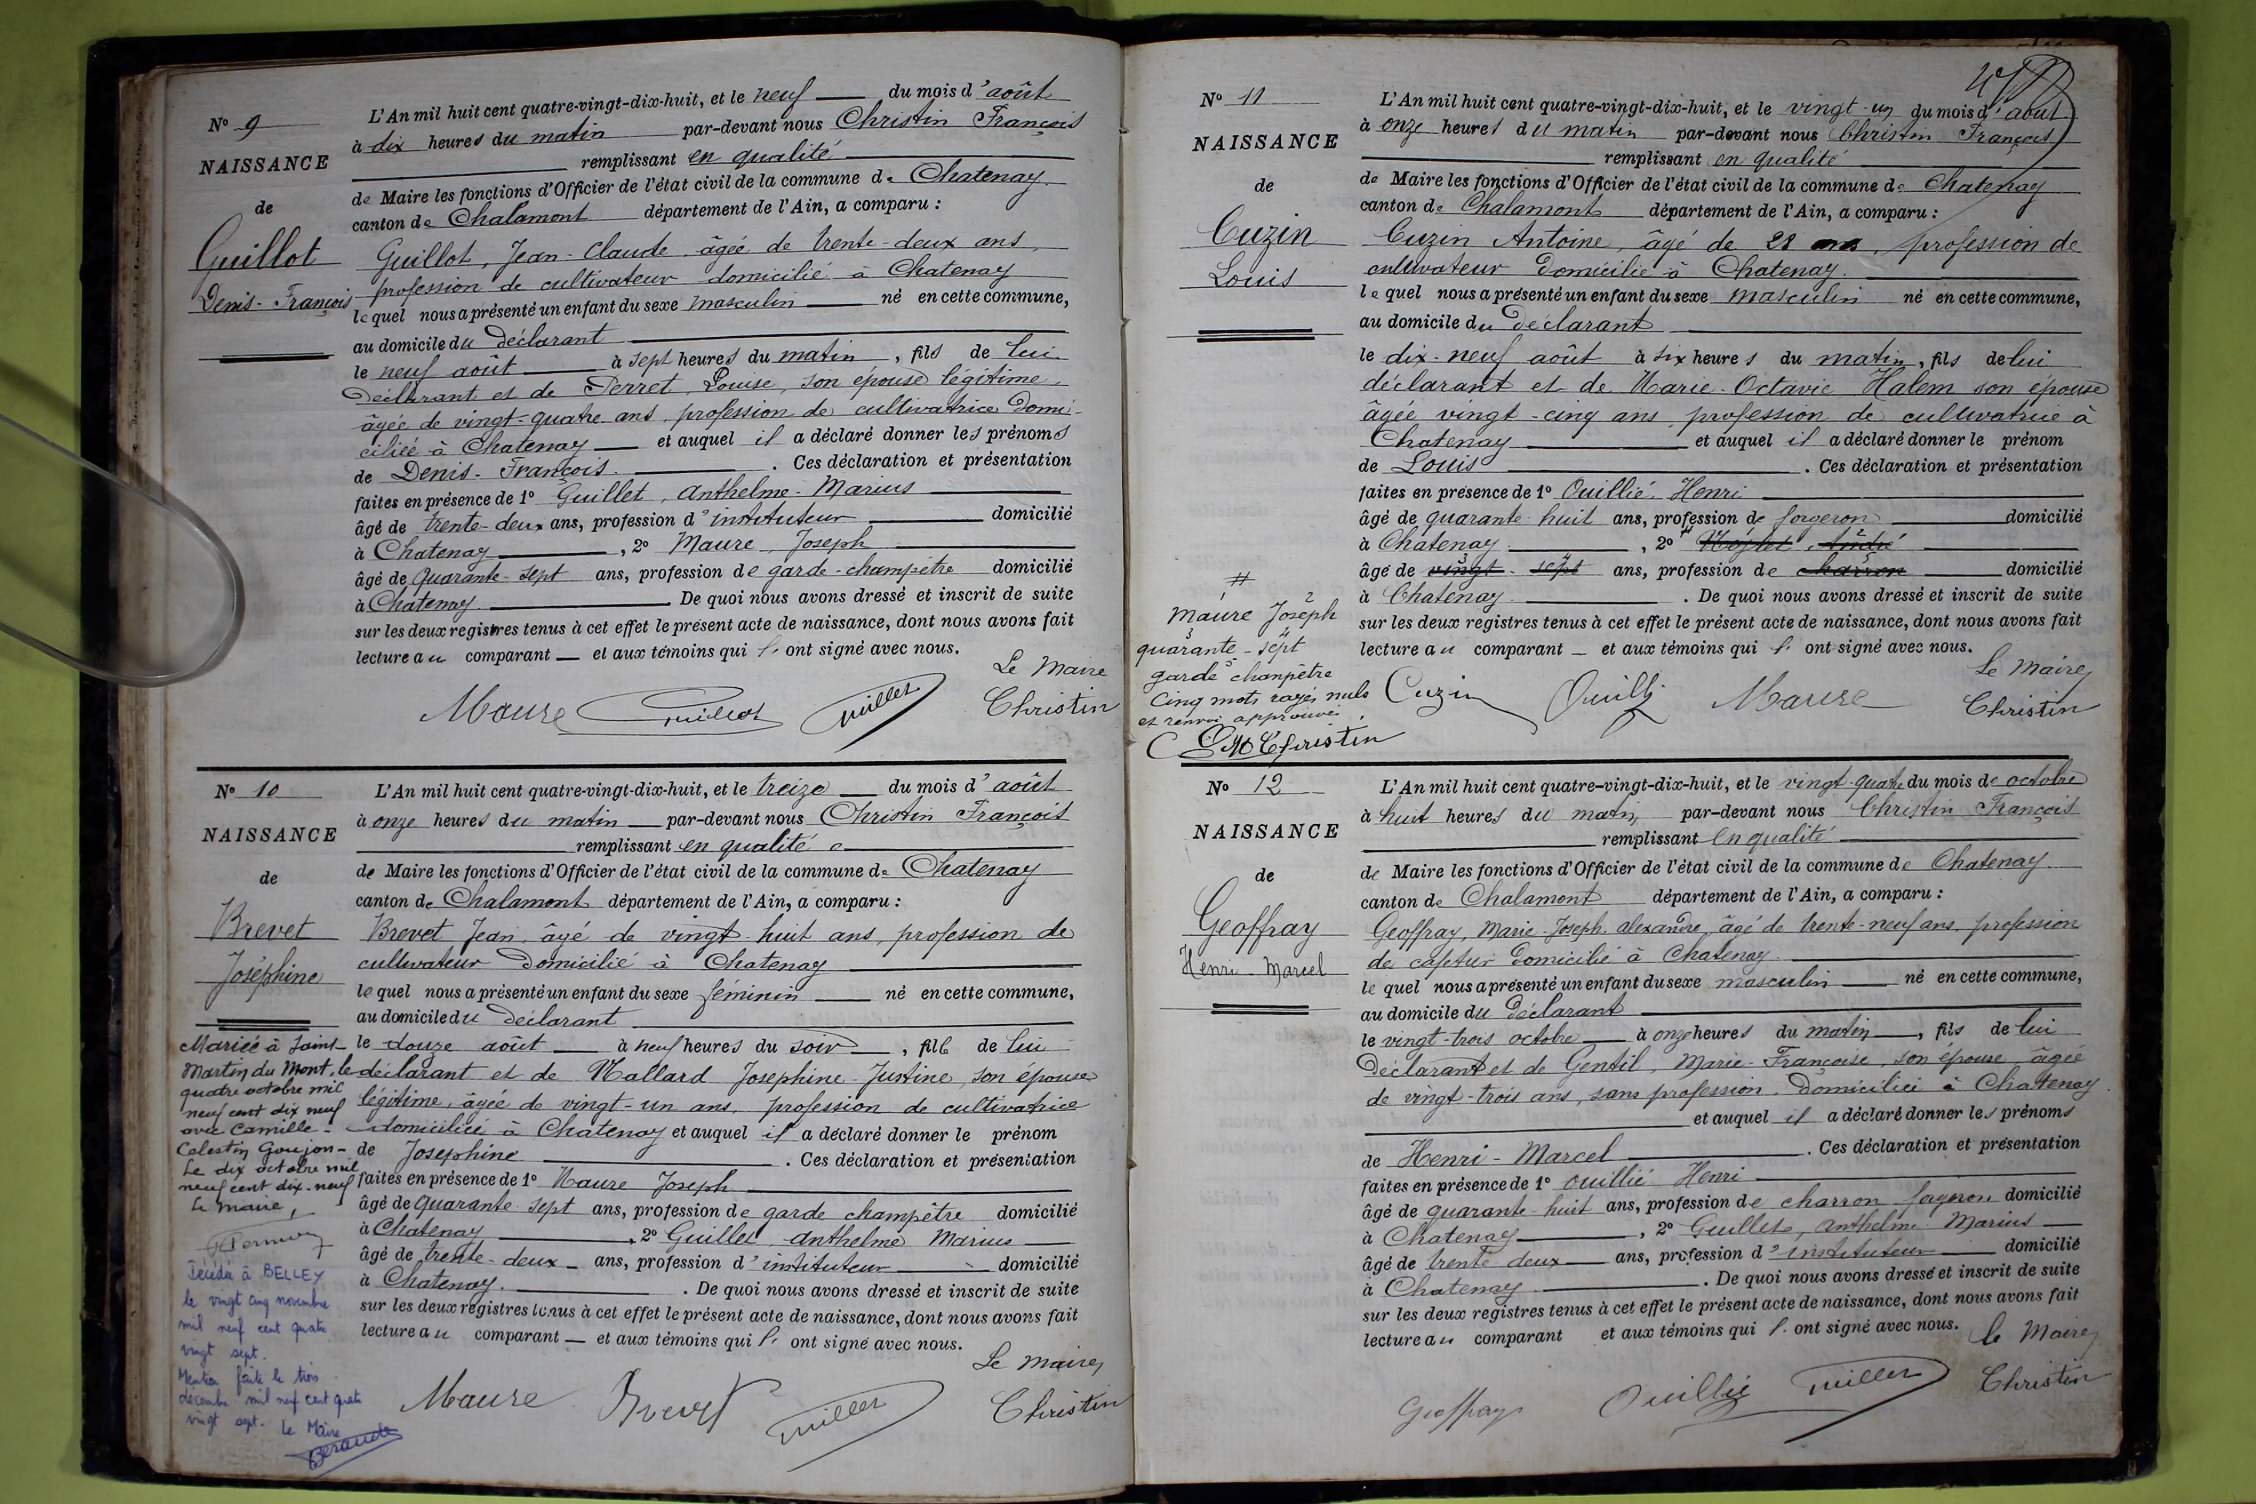 N° 9
NAISSANCE
de
Guillot
Denis-François
L'An mil huit cent quatre-vingt-dix-huit, et le neuf du mois d'août
à dix heures du matin par-devant nous Christin François
remplissant en qualité
de Maire les fonctions d'Officier de l'état civil de la commune de Chatenay
canton de Chalamont département de l'Ain, a comparu :
Guillot, Jean-Claude âgée de trente-deux ans,
profession de cultivateur domicilié à Chatenay
lequel nous a présenté un enfant du sexe masculin né en cette commune,
au domicile du Déclarant
le neuf août à sept heures du matin, fils de lui
Déclarant et de Perret, Louise, son épouse légitime,
âgée de vingt-quatre ans, profession de cultivatrice domi-
ciliée à Chatenay et auquel il a déclaré donner les prénoms
de Denis-François. Ces déclaration et présentation
faites en présence de 1° Guillet, Anthelme-Marius
âgé de trente-deux ans, profession d'instituteur domicilié
à Chatenay, 2° Maure Joseph
âgé de quarante-sept ans, profession de garde-champêtre domicilié
à Chatenay. De quoi nous avons dressé et inscrit de suite
sur les deux registres tenus à cet effet le présent acte de naissance, dont nous avons fait
lecture au comparant et aux témoins qui l' ont signé avec nous.
Le Maire
Maure Guillot Guillet Christin
N° 10
NAISSANCE
de
Brevet
Joséphine
L'An mil huit cent quatre-vingt-dix-huit, et le treize du mois d'août
à onze heures du matin par-devant nous Christin François
remplissant en qualité
de Maire les fonctions d'Officier de l'état civil de la commune de Chatenay
canton de Chalamont département de l'Ain, a comparu :
Brevet Jean, âgé de vingt-huit ans, profession de
cultivateur domicilié à Chatenay
lequel nous a présenté un enfant du sexe féminin né en cette commune,
au domicile du Déclarant
le douze août à neuf heures du soir, fille de lui
déclarant et de Mallard Josephine-Justine, son épouse
légitime, âgée de vingt-un ans, profession de cultivatrice
domiciliée à Chatenay et auquel il a déclaré donner le prénom
de Josephine. Ces déclaration et présentation
faites en présence de 1° Maure Joseph
âgé de quarante sept ans, profession de garde champêtre domicilié
à Chatenay, 2° Guillet Anthelme Marius
âgé de trente-deux ans, profession d'instituteur domicilié
à Chatenay. De quoi nous avons dressé et inscrit de suite
sur les deux registres tenus à cet effet le présent acte de naissance, dont nous avons fait
lecture au comparant et aux témoins qui l' ont signé avec nous.
Le Maire,
Maure Brevet Guillet Christin
Mariée à Saint-
Martin du Mont, le
quatre octobre mil
neuf cent dix neuf
avec Camille-
Celestin Goujon-
Le dix octobre mil
neuf cent dix-neuf
Le maire,
Décédée à BELLEY
le vingt cinq novembre
mil neuf cent quatre
vingt sept.
Mention faite le trois
décembre mil neuf cent quatre
vingt sept. Le Maire
N° 11
NAISSANCE
de
Cuzin
Louis
L'An mil huit cent quatre-vingt-dix-huit, et le vingt-un du mois d'août
à onze heures du matin par-devant nous Christin François
remplissant en qualité
de Maire les fonctions d'Officier de l'état civil de la commune de Chatenay
canton de Chalamont département de l'Ain, a comparu :
Cuzin Antoine, âgé de 28 ans, profession de
cultivateur domicilié à Chatenay
lequel nous a présenté un enfant du sexe masculin né en cette commune,
au domicile du Déclarant
le dix-neuf août à six heures du matin, fils de lui
déclarant et de Marie-Octavie Halem son épouse
âgée vingt-cinq ans, profession de cultivatrice à
Chatenay et auquel il a déclaré donner le prénom
de Louis. Ces déclaration et présentation
faites en présence de 1° Ouillié Henri
âgé de quarante huit ans, profession de forgeron domicilié
à Chatenay, 2° André
âgé de vingt-sept ans, profession de charron domicilié
à Chatenay. De quoi nous avons dressé et inscrit de suite
sur les deux registres tenus à cet effet le présent acte de naissance, dont nous avons fait
lecture au comparant et aux témoins qui l' ont signé avec nous.
Le Maire,
Cuzin Ouillié Maure Christin
#
1 2
maure Joseph
3 4
quarante-sept
5
garde chanpêtre
Cinq mots rayés nuls
et renvoi approuvés.
C O M Christin
N° 12
NAISSANCE
de
Geoffray
Henri-Marcel
L'An mil huit cent quatre-vingt-dix-huit, et le vingt-quatre du mois de octobre
à huit heures du matin, par-devant nous Christin François
remplissant en qualité
de Maire les fonctions d'Officier de l'état civil de la commune de Chatenay
canton de Chalamont département de l'Ain, a comparu :
Geoffray, Marie-Joseph-Alexandre, âgé de trente-neuf ans, profession
de domicilié à Chatenay
lequel nous a présenté un enfant du sexe masculin né en cette commune,
au domicile du Déclarant
le vingt-trois octobre à onze heures du matin, fils de lui
Déclarant et de Gentil, Marie-Françoise, son épouse, âgée
de vingt-trois ans, sans profession, domiciliée à Chatenay
et auquel il a déclaré donner les prénoms
de Henri-Marcel. Ces déclaration et présentation
faites en présence de 1° Ouillié Henri
âgé de quarante-huit ans, profession de charron forgeron domicilié
à Chatenay, 2° Guillet, Anthelme Marius
âgé de trente deux ans, profession d'instituteur domicilié
à Chatenay. De quoi nous avons dressé et inscrit de suite
sur les deux registres tenus à cet effet le présent acte de naissance, dont nous avons fait
lecture au comparant et aux témoins qui l' ont signé avec nous.
Le Maire,
Geoffray Ouillié Guillet Christin